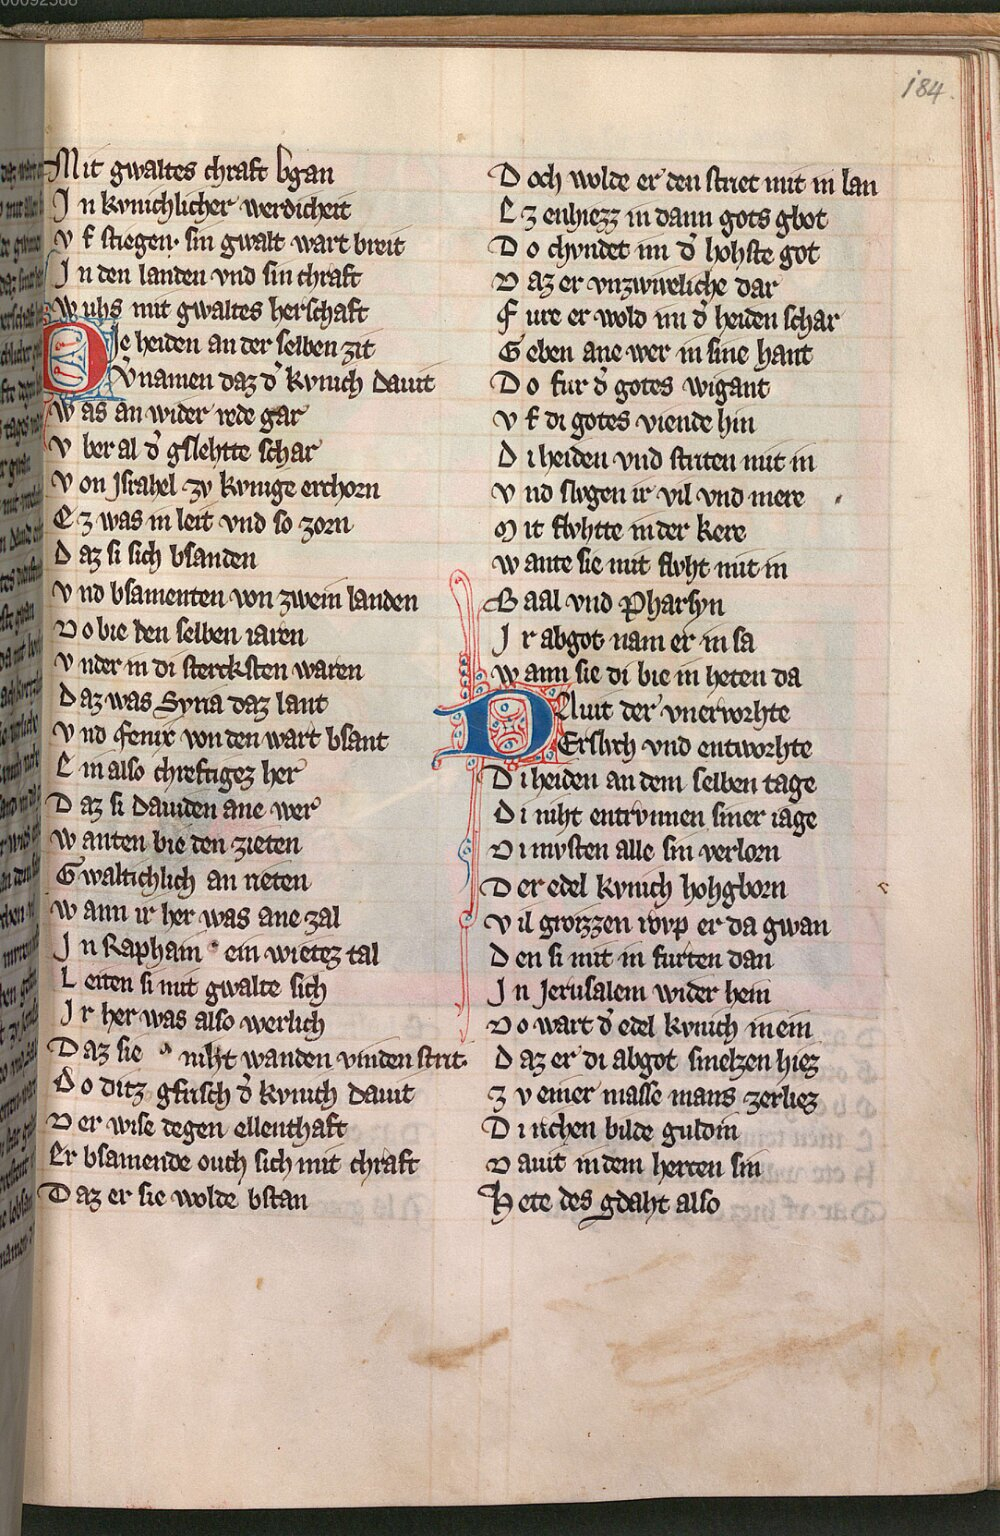 184.
Mit gwaltes chraft bgan
In kvnichlicher werdicheit
Vf stiegen· sin gwalt wart breit
In den landen vnd sin chraft
Wuhs mit gwaltes herschaft
Die heiden an der selben zit
V'namen daz d' kvnich Dauit
Was an wider rede gar
Vber al d' gslehtte schar
Von Israhel zv kvnige erchorn
Ez was in leit vnd so zorn
Daz si sich bsanden
Vnd bsamenten von zwein landen
Do bie den selben iaren
Vnder in di stercksten waren
Daz was Syria daz lant
Vnd fenix von den wart bsant
Ein also chreftigez her
Daz si Dauiden ane wer
Wanten bie den zieten
Gwaltichlich an neten
Wann ir her was ane zal
In Rapham ein wietez tal
Leiten si mit gwalte sich
Ir her was also werlich
Daz sie niht wanden vinden strit
Do ditz gfrisch d' kvnich Dauit
Der wise degen ellenthaft
Er bsamende ouch sich mit chraft
Daz er sie wolde bstan
Doch wolde er den striet nut in lan
Ez enhiezz in dann gots gbot
Do chvndet im d' hohste got
Daz er vnzwiueliche dar
Fure er wold im d' heiden schar
Geben ane wer in sine hant
Do fur d' gotes wigant
Vf di gotes viende hin
Di heiden vnd striten mit in
Vnd slvgen ir vil vnd mere
Mit flvhtte in der kere
Wante sie mit flvht mit in
Baal vnd Pharsyn
Ir abgot nam er in sa
Wann sie di bie in heten da
Dauit der vnervorhte
Erslvch vnd entworhte
Di heiden an dem selben tage
Di niht entrvnnen siner iage
Di mvsten alle sin verlorn
Der edel kvnich hohgborn
Vil groizzen rovp er da gwan
Den si mit in furten dan
In Jerusalem wider hein
Do wart d' edel kvnich in ein
Daz er di abgot smelzen hiez
Zv einer masse mans zerliez
Di richen bilde guldin
Dauit in dem hercen sin
Hete des gdaht also